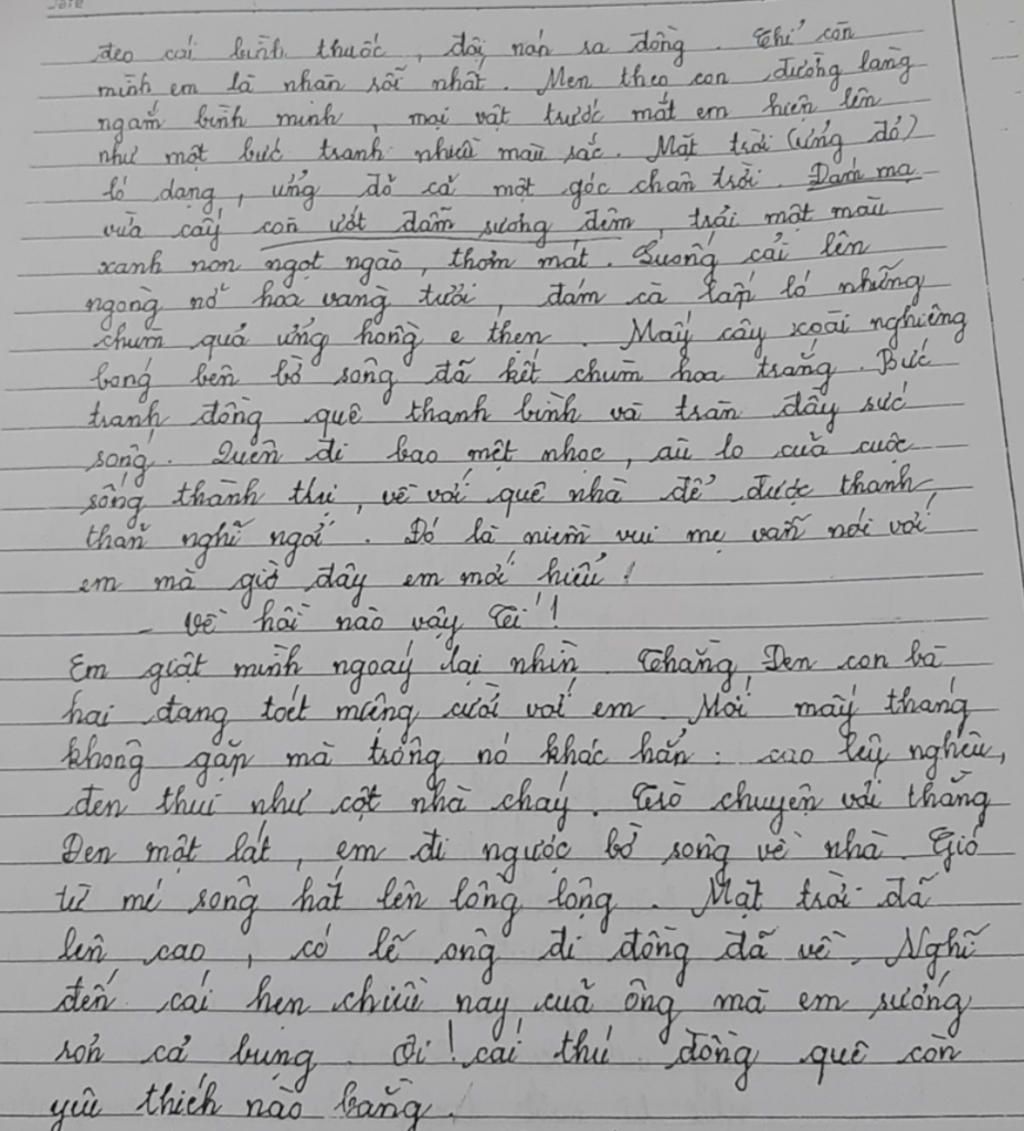 Date
đeo cái bình thuốc, đội nón ra đồng. Chỉ còn
mình em là nhàn rỗi nhất. Men theo con đường làng
ngắm bình minh, mọi vật trước mắt em hiện lên
như một bức tranh nhiều màu sắc. Mặt trời (ửng đỏ)
ló dạng, ửng đỏ cả một góc chân trời. Đám mạ
vừa cấy còn ướt đẫm sương đêm, trải một màu
xanh non ngọt ngào, thơm mát. Luống cải lên
ngồng nở hoa vàng tươi, đám cà lấp ló những
chùm quả ửng hồng e thẹn. Mấy cây xoài nghiêng
bóng bên bờ sông đã kết chùm hoa trắng. Bức
tranh đồng quê thanh bình và tràn đầy sức
sống. Quên đi bao mệt nhọc, âu lo của cuộc
sống thành thị, về với quê nhà để được thanh
thản nghỉ ngơi. Đó là niềm vui mẹ vẫn nói với
em mà giờ đây em mới hiểu!
- Về hồi nào vậy Tí!
Em giật mình ngoáy lại nhìn. Thằng Đen con bà
hai đang toét miệng cười với em. Mới mấy tháng
không gặp mà trông nó khác hẳn: cao lêu nghêu,
đen thui như cột nhà cháy. Trò chuyện với thằng
Đen một lát, em đi ngược bờ sông về nhà. Gió
từ mé sông hắt lên lồng lộng. Mặt trời đã
lên cao, có lẽ ông đi đồng đã về. Nghĩ
đến cái hẹn chiều nay của ông mà em sướng
rơn cả bụng. Ôi! cái thú đồng quê còn
yêu thích nào bằng.